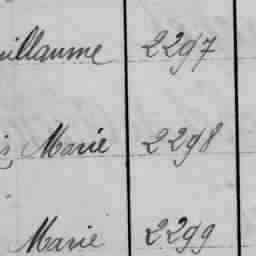 uillaume 2297
s, Marie 2298
Marie 2299